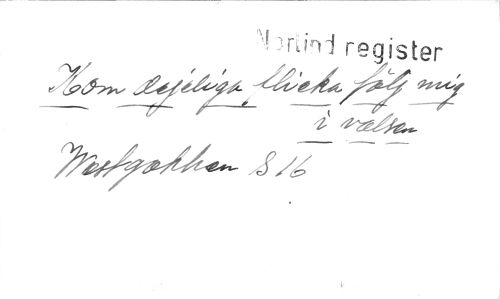 Norlind register
Kom dejeliga flicka följ mig
i valsen
Westgökhen S 16